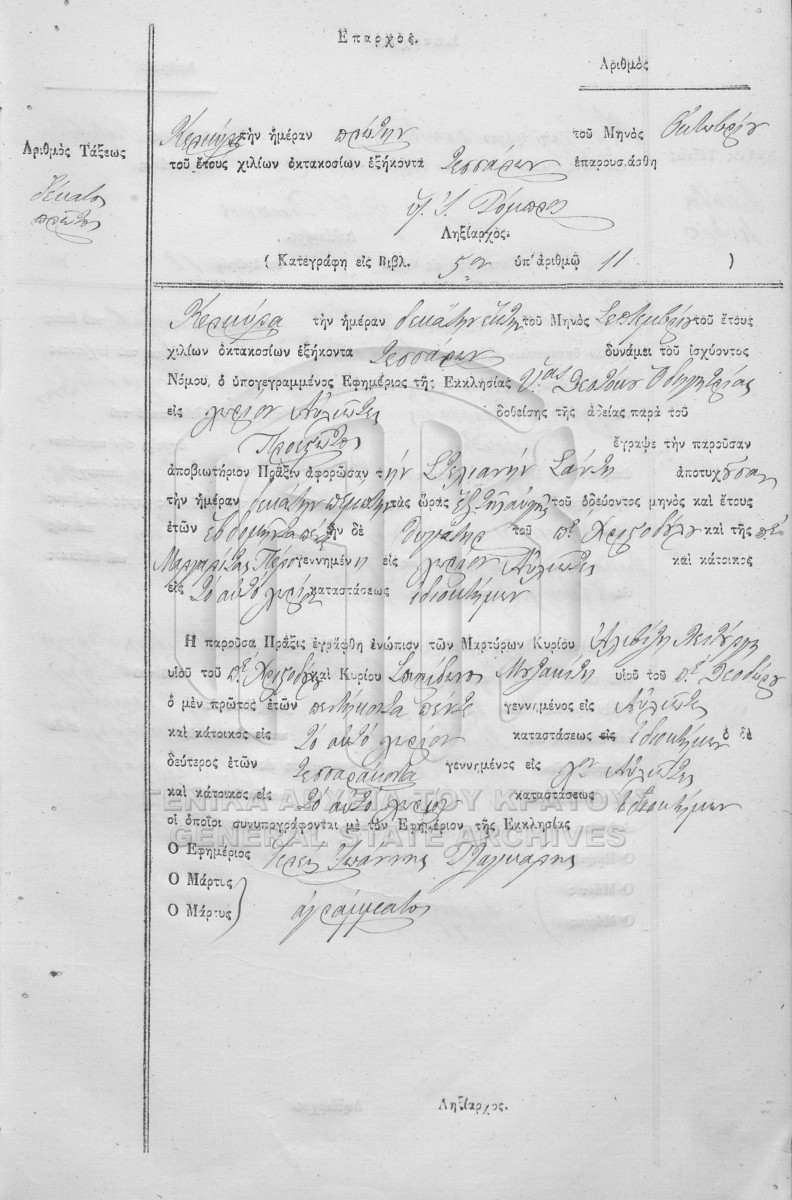 Επαρχος.
Αριθμὸς
Αριθμὸς Τάξεως
δέκατος
πρῶτος
Κέρκυρα τὴν ἡμέραν πρώτην τοῦ Μηνὸς Οκτωβρίου
τοῦ ἔτους χιλίων ὀκτακοσίων ἑξήκοντα τεσσάρων ἐπαρουσιάσθη
Ληξίαρχὸς.
( Κατεγράφη εἰς Βιβλ. 5ον ὑπ' ἀριθμῷ 11 )
Κέρκυρα τὴν ἡμέραν δεκάτην ἕκτην τοῦ Μηνὸς Σεπτεμβρίου τοῦ ἔτους
χιλίων ὀκτακοσίων ἑξήκοντα τεσσάρων δυνάμει τοῦ ἰσχύοντος
Νόμου, ὁ ὑπογεγραμμένος Εφημέριος τῆς Εκκλησίας Υ.ας Θεοτόκου Οδηγητρίας
εἰς χωρίον Αὐλιῶτες δοθείσης τῆς ἀδείας παρὰ τοῦ
Προεστῶτος ἔγραψε τὴν παροῦσαν
ἀποβιωτήριον Πρᾶξιν ἀφορῶσαν τὴν Στελιανὴν Σάντη ἀποτυχοῦσαν
τὴν ἡμέραν δεκάτην πέμπτην τὰς ὥρας ἓξ τῆς αὐγῆς τοῦ ὁδεύοντος μηνὸς καὶ ἔτους
ἐτῶν ἑβδομῆντα πέντε ἣν δὲ θυγάτηρ τοῦ πτὲ Χριστοδούλου καὶ τῆς πτὲ
Μαργαρίτας γεννημένη εἰς χωρίον Αὐλιῶτες καὶ κάτοικος
εἰς τὸ αὐτὸ χωρίον καταστάσεως ἰδιοκτήμων
Η παροῦσα Πρᾶξις ἐγράφθη ἐνώπιον τῶν Μαρτύρων Κυρίου Ἀλιβίζη
υἱοῦ τοῦ πτὲ Χριστοδούλου καὶ Κυρίου Σπιρίδωνος υἱοῦ τοῦ πτὲ Θεοδώρου
ὁ μὲν πρῶτος ἐτῶν πενῆντα πέντε γεννημένος εἰς Αὐλιῶτες
καὶ κάτοικος εἰς τὸ αὐτὸ χωρίον καταστάσεως εἰς ἰδιοκτήμων ὁ δὲ
δεύτερος ἐτῶν τεσσαράκοντα γεννημένος εἰς χον Αὐλιῶτες
καὶ κάτοικος εἰς τὸ αὐτὸ χωρίον καταστάσεως ἰδιοκτήμων
οἱ ὁποῖοι συνυπογράφονται μὲ τὸν Εφημέριον τῆς Εκκλησίας
Ο Εφημέριος Ἱερεὺς Ἰωάννης
Ο Μάρτις
Ο Μάρτυς ἀγράμματοι
Ληξίαρχος.
ΓΕΝΙΚΑ ΑΡΧΕΙΑ ΤΟΥ ΚΡΑΤΟΥΣ
GENERAL STATE ARCHIVES